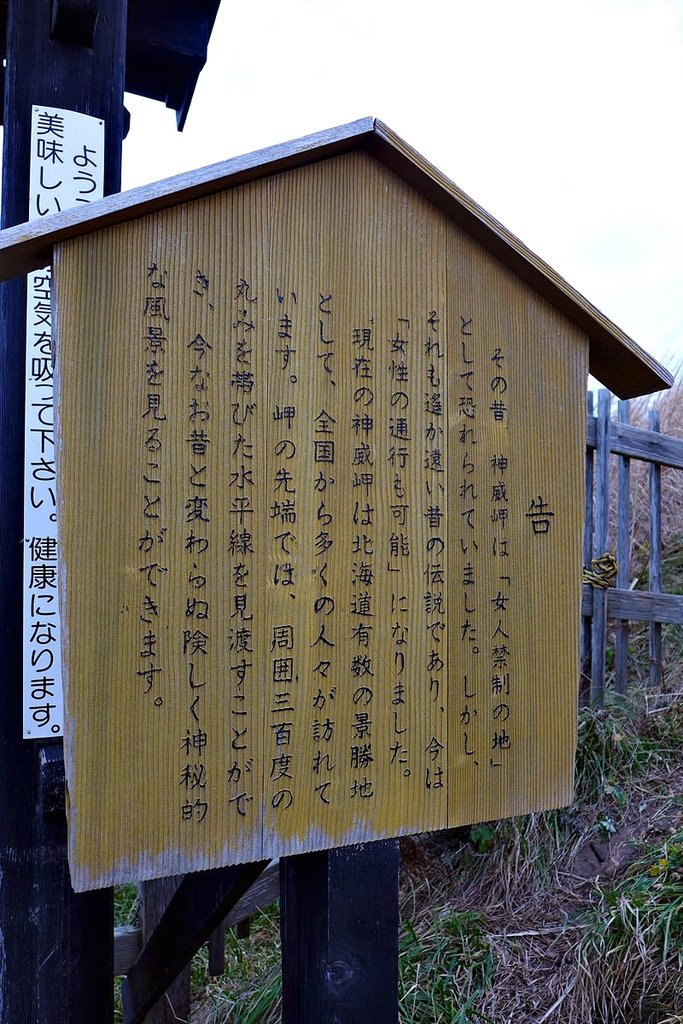 告
その昔、神威岬は「女人禁制の地」
として恐れられていました。しかし、
それも遙か遠い昔の伝説であり、今は
「女性の通行も可能」になりました。
現在の神威岬は北海道有数の景勝地
として、全国から多くの人々が訪れて
います。岬の先端では、周囲三百度の
丸みを帯びた水平線を見渡すことがで
き、今なお昔と変わらぬ険しく神秘的
な風景を見ることができます。
よう
美味しい空気を吸って下さい。健康になります。